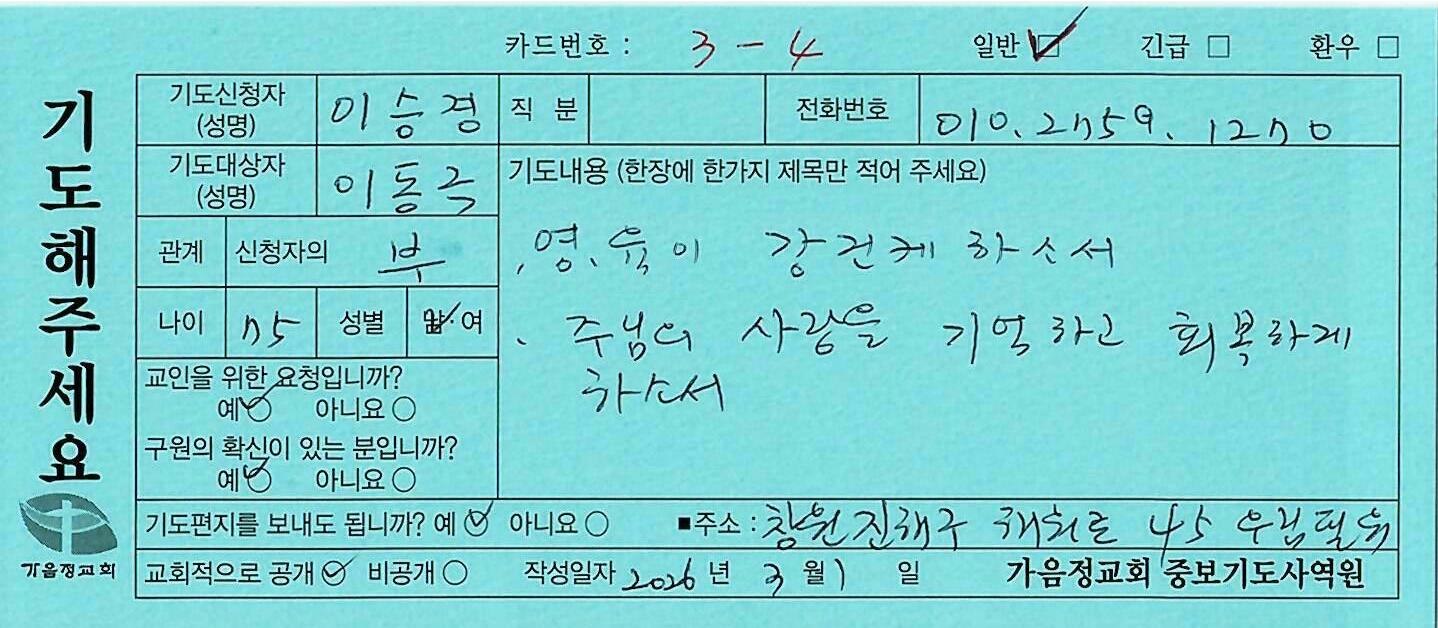 카드번호 : 3 - 4 일반 ☑ 긴급 □ 환우 □
기도해주세요
기도신청자 (성명) 이승경 직 분 전화번호 010. 2759. 1270
기도대상자 (성명) 이동국 기도내용 (한장에 한가지 제목만 적어 주세요)
관계 신청자의 부
. 영. 육이 강건케 하소서
나이 75 성별 남·여
. 주님의 사랑을 기억하고 회복하게
하소서
교인을 위한 요청입니까?
예 ○ 아니요 ○
구원의 확신이 있는 분입니까?
예 ○ 아니요 ○
기도편지를 보내도 됩니까? 예 ○ 아니요 ○ ■주소 : 창원 진해구 45 우림필유
교회적으로 공개 ○ 비공개 ○ 작성일자 2026 년 3 월 1 일 가음정교회 중보기도사역원
가음정교회